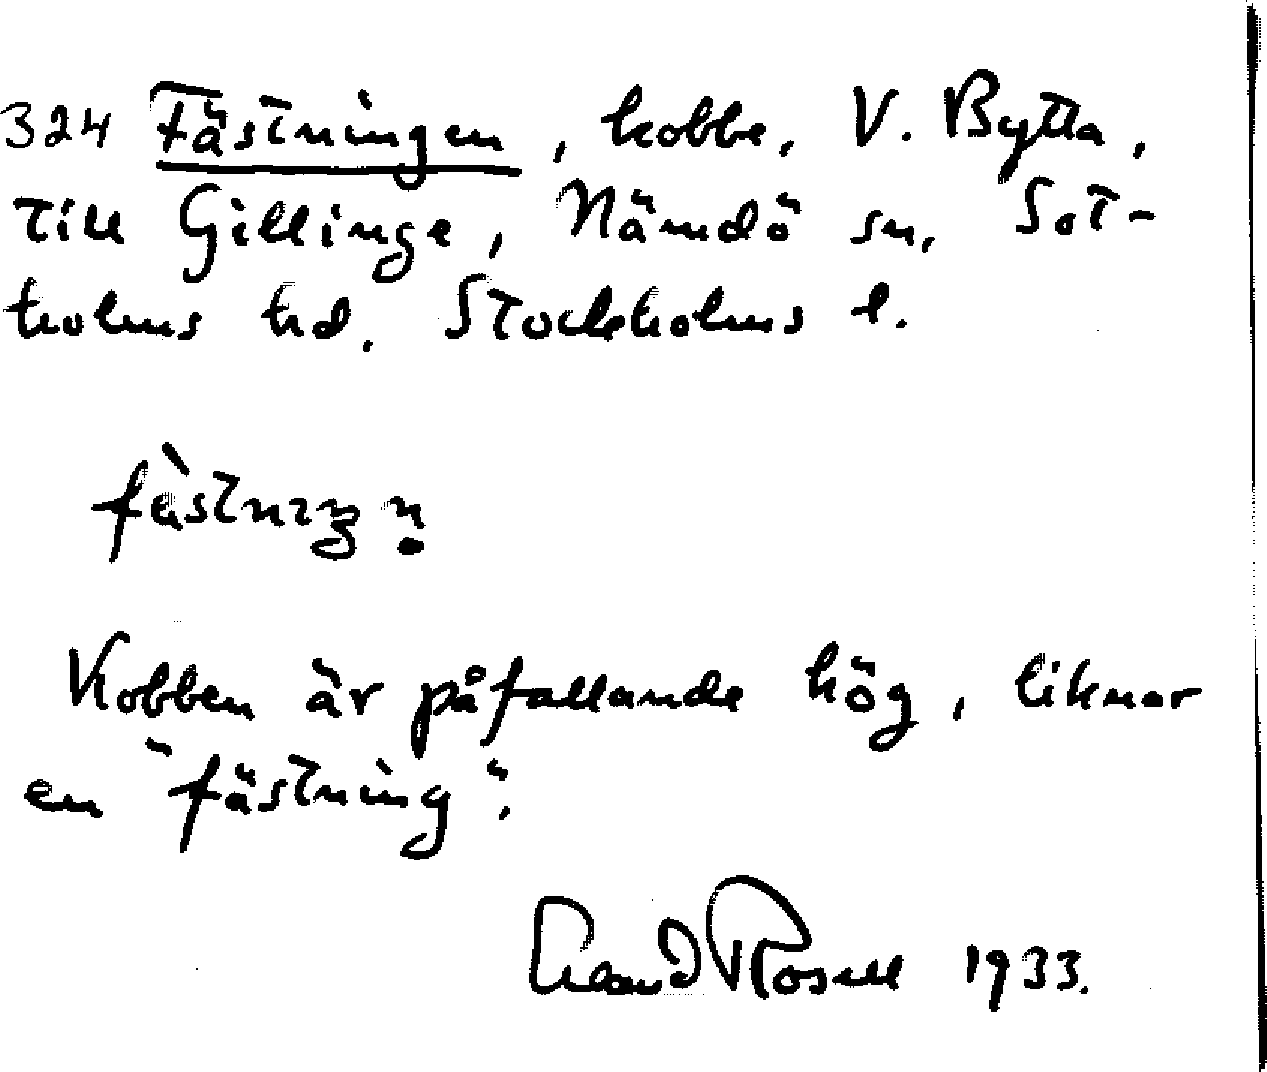 324 Fästningen, kobbe, V. Bytta,
till Gillinge, Nämdö sn, Sot-
holms hd. Stockholms l.
Kobben är påfallande hög, liknar
en "fästning".
Rosell 1933.